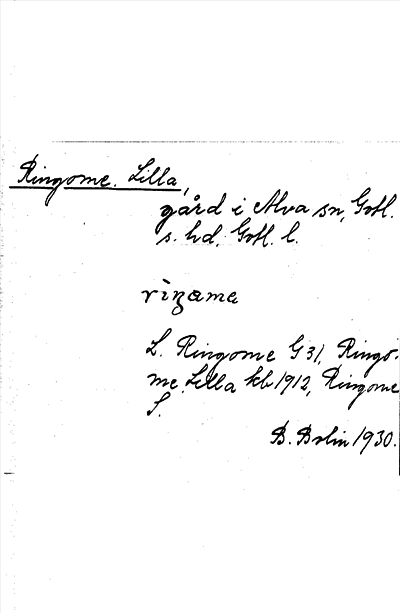 Ringome. Lilla,
gård i Alva sn, Gotl.
s. hd, Gotl. l.
L. Ringome G 31, Ringo-
me Lilla kb 1912, Ringome
S.
B. Bolin 1930.